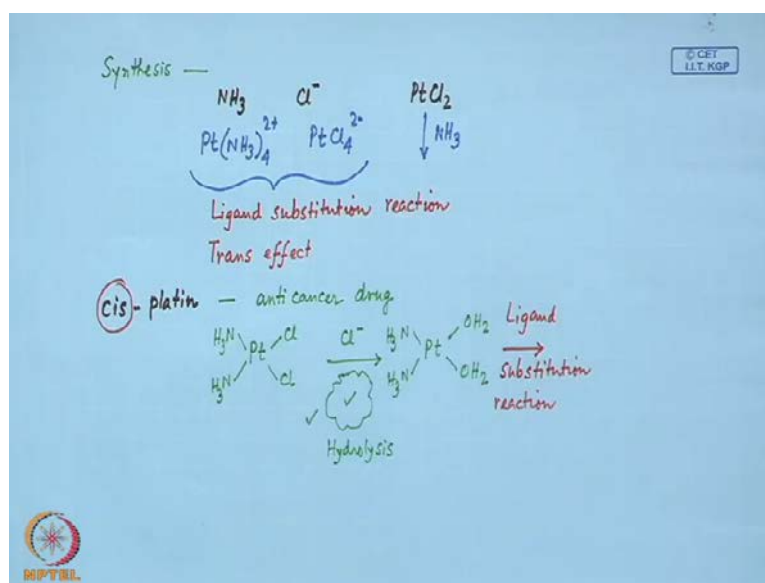 © CET
I.I.T. KGP
Synthesis —
NH3 Cl⁻ PtCl2
Pt(NH3)4²⁺ PtCl4²⁻ ↓ NH3
Ligand substitution reaction
Trans effect
cis - platin — anti cancer drug
H3N Cl Cl⁻ H3N OH2 Ligand
Pt Pt →
H3N Cl ✓ ✓ H3N OH2 Substitution
reaction
Hydrolysis
NPTEL